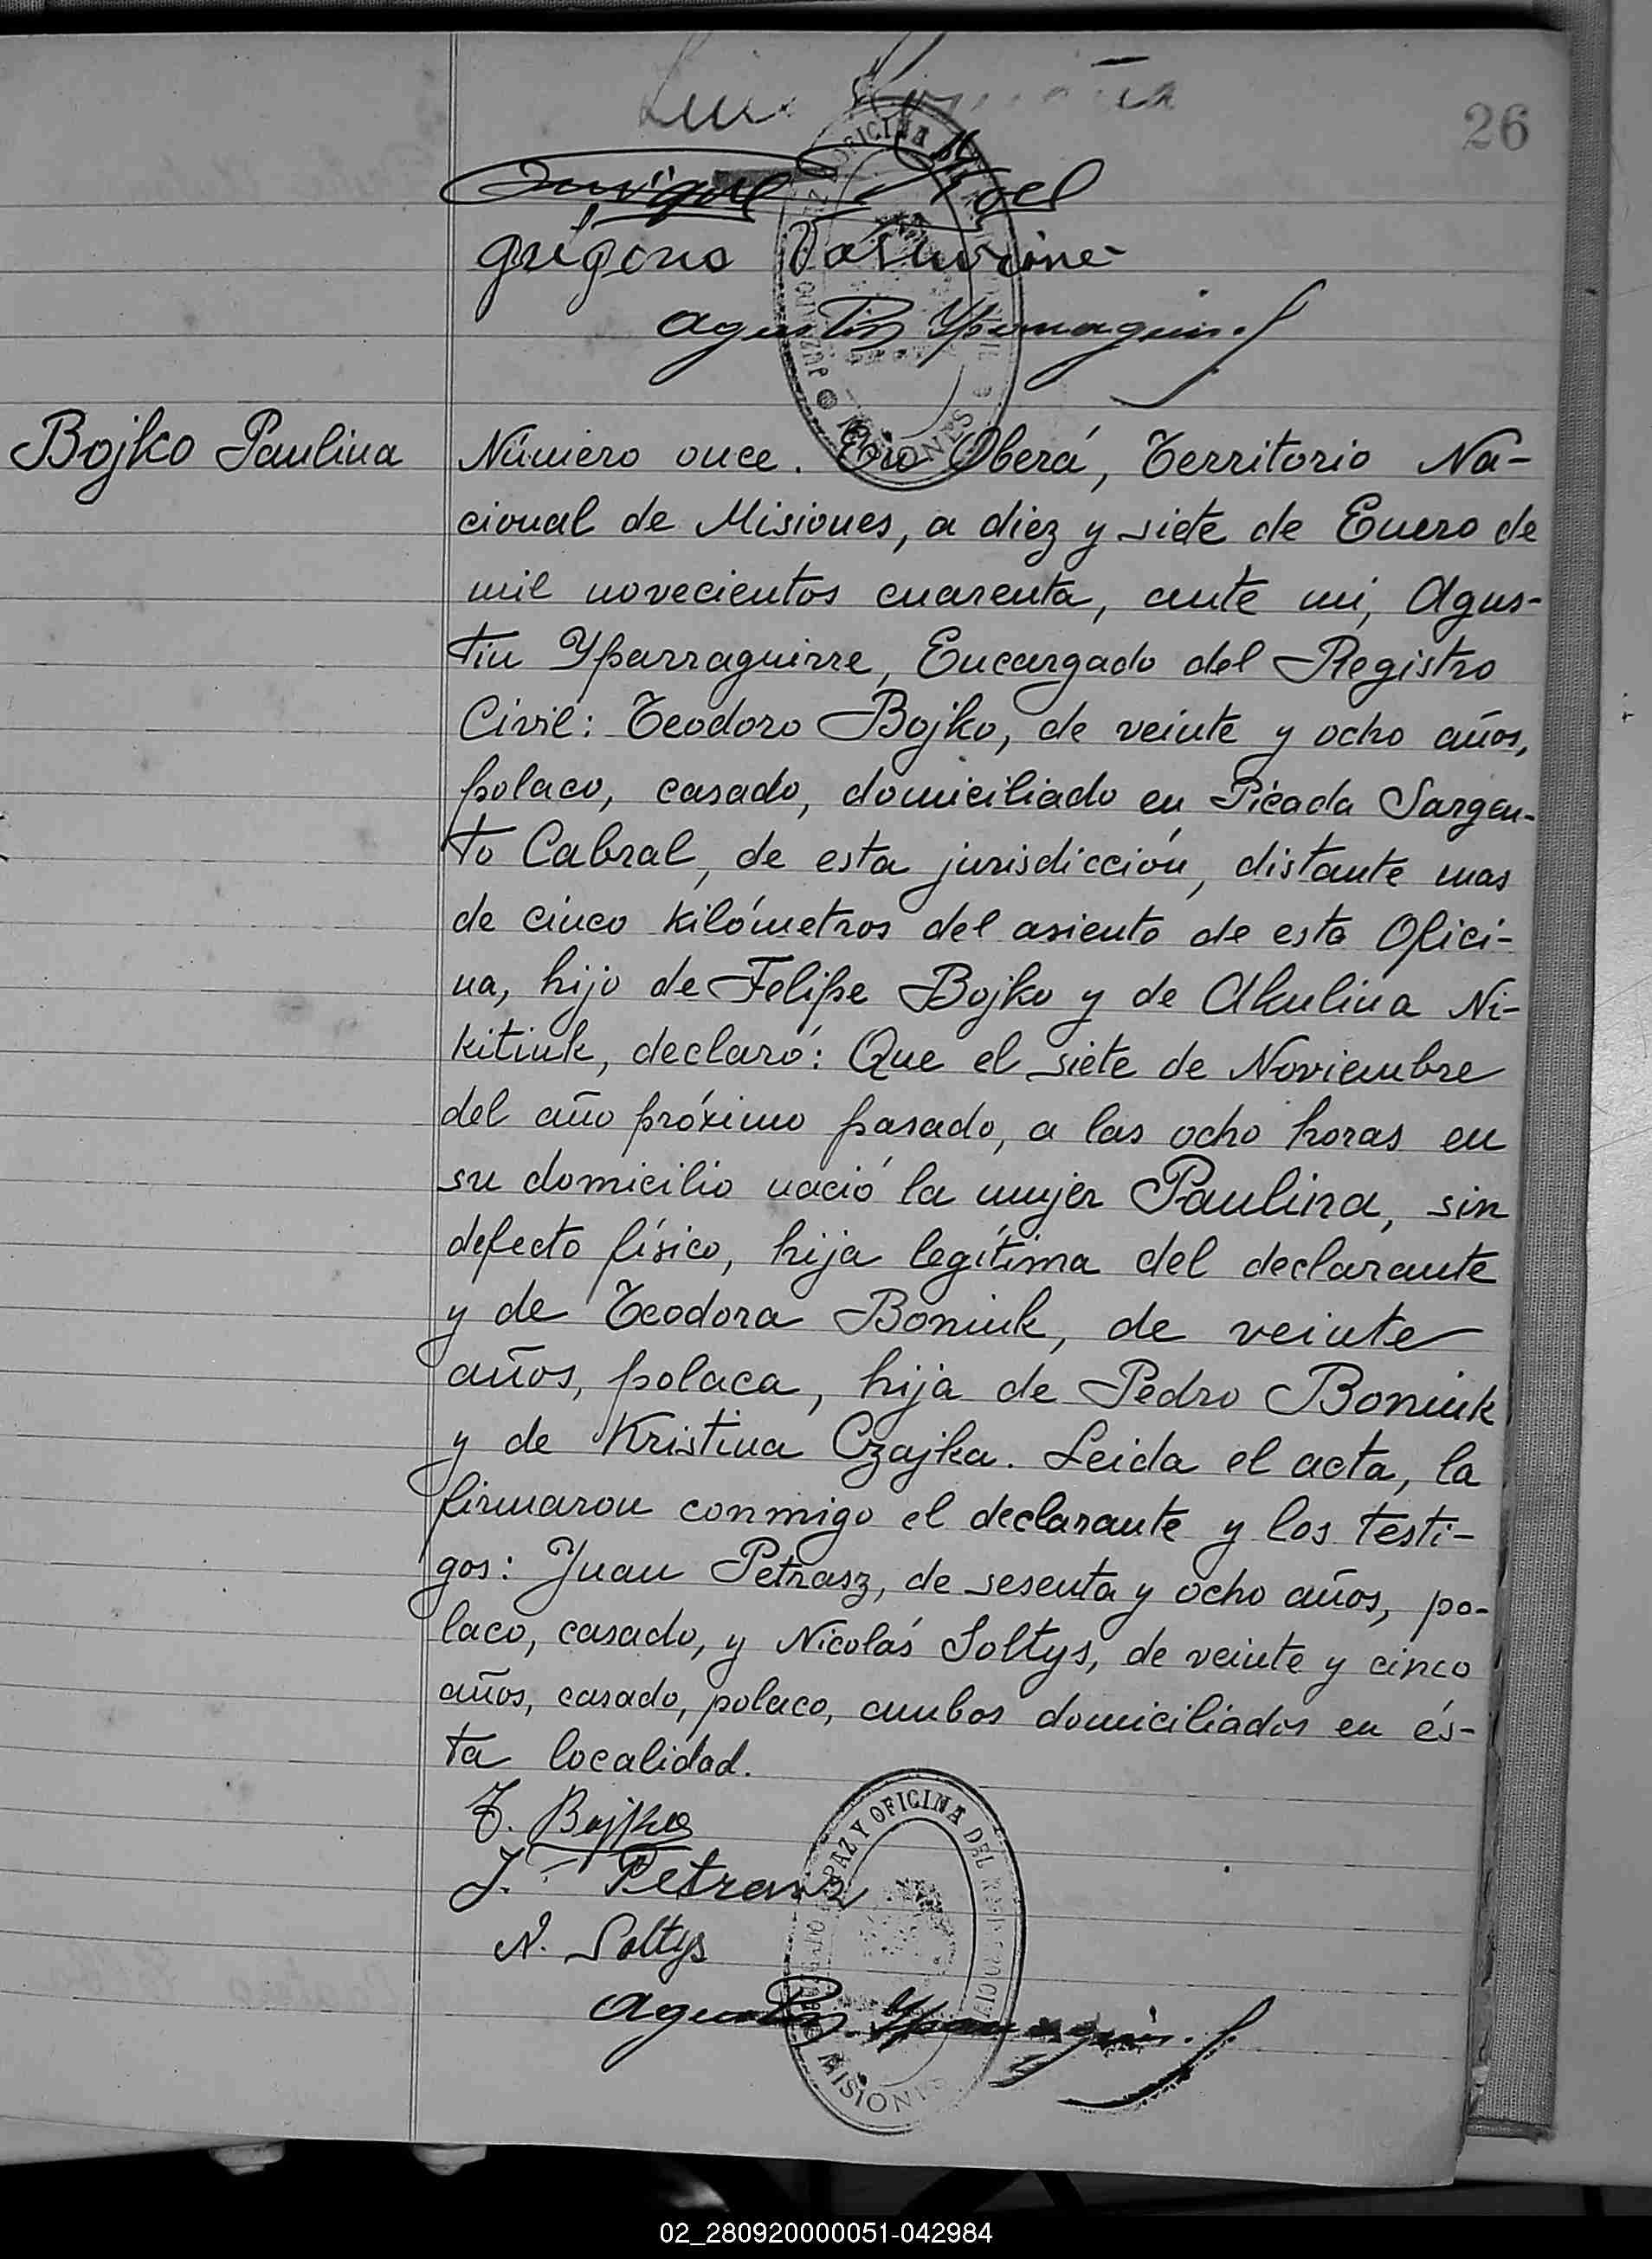 26
Luis
Enrique Noel
Gregorio
Agustin Yparraguirre
Bojko Paulina
Número once. En Oberá, Territorio Na-
cional de Misiones, a diez y siete de Enero de
mil novecientos cuarenta, ante mi, Agus-
tin Yparraguirre, Encargado del Registro
Civil: Teodoro Bojko, de veinte y ocho años,
polaco, casado, domiciliado en Picada Sargen-
to Cabral, de esta jurisdicción, distante mas
de cinco kilómetros del asiento de esta Ofici-
na, hijo de Felipe Bojko y de Akulina Ni-
kitiuk, declaró: Que el siete de Noviembre
del año próximo pasado, a las ocho horas en
su domicilio nació la mujer Paulina, sin
defecto físico, hija legítima del declarante
y de Teodora Boniuk, de veinte
años, polaca, hija de Pedro Boniuk
y de Kristina Czajka. Leida el acta, la
firmaron conmigo el declarante y los testi-
gos: Juan Petrasz, de sesenta y ocho años, po-
laco, casado, y Nicolás Soltys, de veinte y cinco
años, casado, polaco, ambos domiciliados en és-
ta localidad.
T. Bojko
J. Petrasz
N. Soltys
Agustin Yparraguirre
JUZGADO DE PAZ Y OFICINA DEL REGISTRO CIVIL
MISIONES
02_280920000051-042984